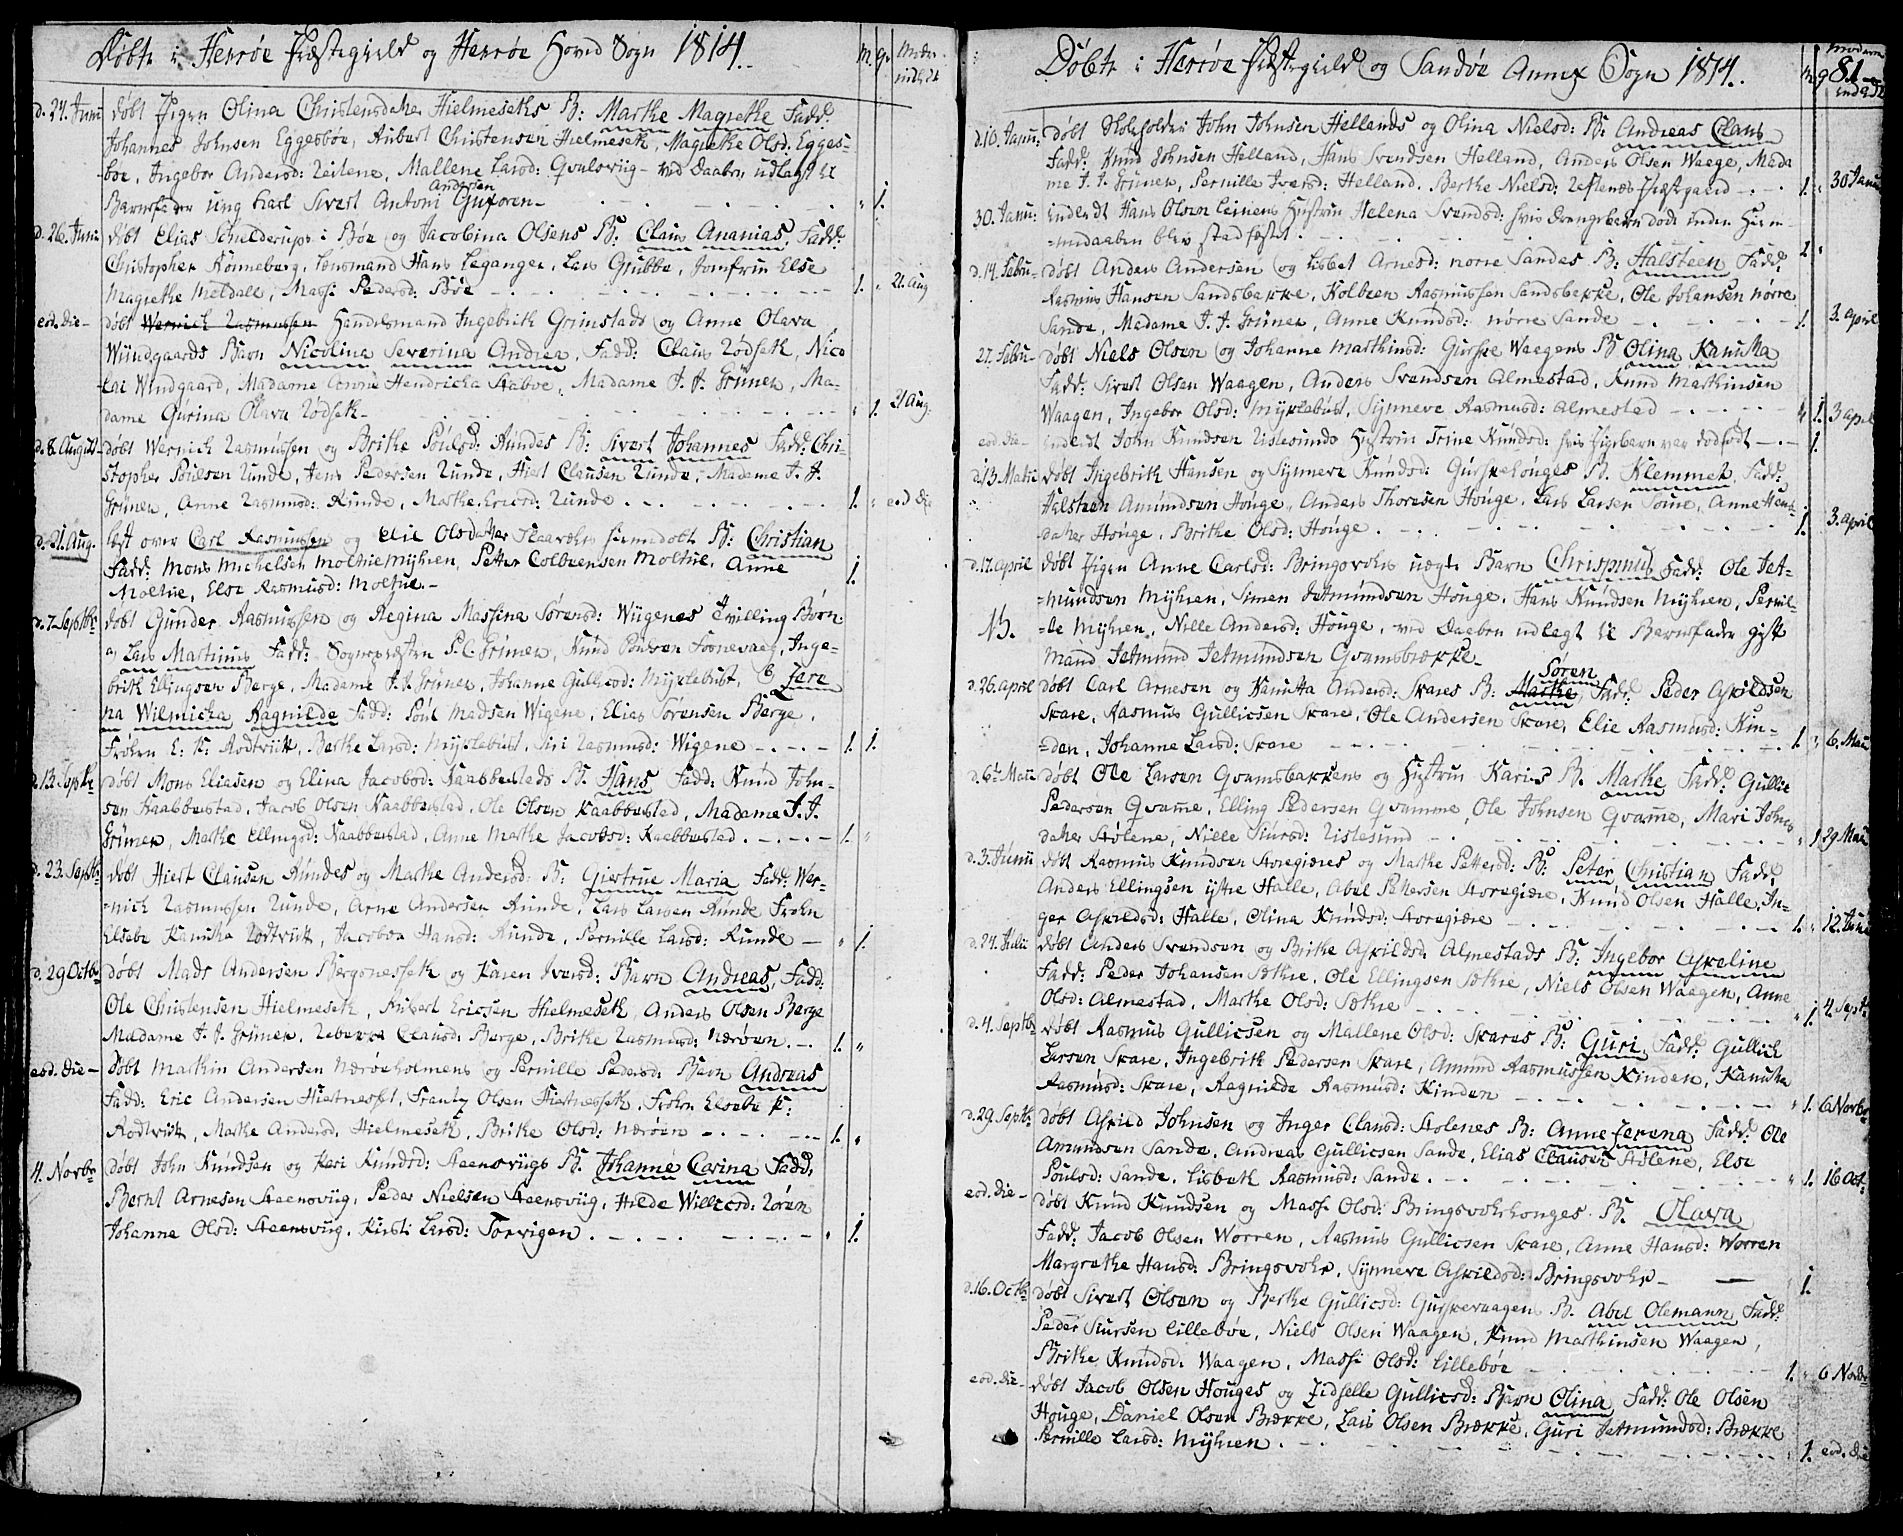 Døbte i Herröe Præstegield og Herröe Hoved Sogn 1814.
m. q.
d. 24. Junii døbt Pigen Olina Christensdatter Hielmeseths B: Marthe Magrethe Fadd:
Johannes Johnsen Eggesböe, Aubert Christensen Hielmeseth, Magrethe Olsd: Egges-
böe, Ingebor Andersd: Leitene, Mallene Larsd: Qvalsviig - ved Daaben udlagt til
Barnefader ung karl Sivert Antoni Andersen - 1.
d. 26. Junii døbt Elias Schelderups i Böe og Jacobina Olsens B. Claus Ananias, Fadd:
Christopher Rönneberg, Lensmand Hans Leganger, Lars Grubbe, Jomfrue Else
Magrethe Meldall, Massi Pedersd: Böe - 1. 21 Aug
eod. die - døbt Wernich Rasmussen Handelsmand Ingebrith Grimstads og Anne Olava
Wündgaards Barn Nicolina Severina Andrea, Fadd: Claus Rödseth, Nico
lai Windgaard, Madame Anne Hendricha Stabve, Madame J. J. Grüner, Ma-
dame Gurina Olava Rödseth - 1. 21 Aug.
d. 8. August døbt Wernich Rasmussen og Brithe Poulsd: Rundes B: Sivert Johannes Fadd: Chri-
stopher Poulsen Runde, Jens Pedersen Runde, Hiert Clausen Runde, Madame J. J.
Grüner, Anne Rasmusd: Runde, Marthe Ericsd: Runde - 1. eod die
d. 21. Aug. læst over Carl Rasmussen og Elie Olsdatter hiemedöbt B: Christian
Fadd: Mons Michelsen Moltue Myhren, Petter Colbensen Moltue, Anne
Moltue, Else Rasmusd: Moltue - 1.
d. 7. Septbr døbt Gunder Rasmussen og Regina Massina Sörensd: Wügenes Tvilling Børn
a) Lars Martinus Fadd: Sognepræsten P. C. Grüner, Knud Poulsen Fosnevaag, Inge-
brith Ellingsen Berge, Madame J. J. Grüner, Johanne Gullicsd: Myklebust, b) Jere
na Wilmicha Ragnilde Fadd: Poul Madsen Wigene, Elias Sörensen Berge,
Frøken E: K: Rodtvitt, Berthe Larsd: Myklebust, Siri Rasmusd: Wigene - 1. 1.
d. 13. Septbr døbt Mons Eliasen og Elina Jacobsd: Kaabbestads B. Hans Fadd: Knud John-
sen Kaabbestad, Jacob Olsen Kaabbestad, Ole Olsen Kaabbestad, Madame J. J.
Grüner, Marthe Ellingsd: Kaabbestad, Anne Marthe Jacobsd: Kaabbestad - 1.
d. 23. Septbr døbt Hiert Clausen Rundes og Marthe Andersd: B: Giertrue Maria Fadd: Wer-
nich Rasmussen Runde, Arne Andersen Runde, Lars Larsen Runde Frøken
Elsebe Kanutha Rodtvitt, Jacobea Hansd: Runde, Pernille Larsd: Runde - 1.
d. 29 Octbr døbt Mads Andersen Bergonesseth og Karen Iversd: Barn Andreas, Fadd:
Ole Christensen Hielmeseth, Aubert Ericsen Hielmeseth, Anders Olsen Berge
Madame J. J. Grüner, Rebekka Clausd: Berge, Brithe Rasmusd: Nærøen - 1.
eod. die - døbt Marthin Andersen Nærøeholmens og Pernille Pedersd: Barn Andreas
Fadd: Eric Andersen Hiertnesset, Frantz Olsen Hiertnesseth, Frøken Elsebe K:
Rodtvitt, Marthe Andersd. Hielmeseth, Brithe Olsd: Nærøen - 1.
4. Novbr døbt John Knudsen og Kari Knudsd: Steensviigs B. Johanne Carina Fadd:
Bernt Arnesen Steensviig, Peder Nielsen Steensviig, Hilde Willicsd: Rören
Johanne Olsd: Steensviig, Kirsti Larsd: Torvigen - 1.
Døbte i Heröe Præstegield og Sandøe Annex Sogn 1814.
81
d. 10. Janu: døbt Skoleholder John Johnsen Hellands og Olina Nielsd: B: Andreas Claus
Fadd: Knud Johnsen Helland, Hans Svendsen Helland, Anders Olsen Waage, Mada
me J. J. Grüner, Pernille Iversd: Helland, Berthe Nielsd: Uestenæs Præstgaard - 1. 30 Janu
30. Janu: inledt Hans Olsen Leinens Hustrue Helena Svendsd: hvis drengebarn döde inden Hiem-
medaaben blev stadfæstet - 1.
d. 14. Febru - døbt Anders Andersen og Lisbet Arnesd: nörre Sandes B: Halsteen Fadd:
Rasmus Hansen Sandsbakke, Kolbeen Rasmussen Sandsbakke, Ole Johansen nörre
Sande, Madame J. J. Grüner, Anne Knudsd: nörre Sande - 1. 3. April
27. Febru - døbt Niels Olsen og Johanne Marthinsd: Gurskevaagens B Olina Kanutha
Fadd: Sivert Olsen Waagen, Anders Svendsen Almestad, Knud Marthinsen
Waagen, Ingebor Olsd: Myklebust, Synneve Rasmusd: Almestad - 1. 3 April
eod. die - inledt John Knudsen Listesunds Hustrue Trine Knudsd: hvis Pigebarn var dødfødt - 1.
d. 13. Martii døbt Ingebrith Hansen og Synneve Knudsd: Gurskehouges B. Klemmet Fadd:
Halsteen Amundsen Houge, Anders Thoresen Houge, Lars Larsen Soeue, Anne Hens
datter Houge, Brithe Olsd: Houge - 1. 3. April
d. 17. April døbt Pigen Anne Carlsd: Bringsvohrs uægte Barn Chrispinus Fadd: Ole Jet-
mundsen Myhren, Simen Jetmundsen Houge, Hans Knudsen Myhren, Pernil-
NB. le Myhren, Nille Andersd: Houge, ved Daaben udlagt til Barnefader gift
Mand Jetmund Jetmundsen Qvamsbække -
Sören
d. 26. April døbt Carl Arnesen og Kanutta Andersd: Skares B: Marthe Fadd: Peder Askildsen
Skare, Rasmus Gullicsen Skare, Ole Andersen Skare, Elie Rasmusd: Kin-
den, Johanne Larsd: Skare - 1. 6. Maii
d. 6te Maii døbt Ole Larsen Qvamsbakkens og Hustrue Karis B. Marthe Fadd: Gullic
Pedersen Qvamme, Elling Pedersen Qvamme, Ole Johnsen Qvamme, Mari Johns
datter Stölene, Nille Siursd: Listesund - 1. 29. Maii
d. 3. Junii døbt Rasmus Knudsen Storegiæres og Marthe Pettersd: B: Peter Christian Fadd:
Anders Ellingsen ystre Halle, Abel Petersen Storegiære, Knud Olsen Halle, In-
ger Askildsd: Halle, Olina Knudsd: Storegiære - 1. 12. Junii
d. 24. Julii døbt Anders Svendsen og Brithe Askildsd: Almestads B: Ingebor Askeline
Fadd: Peder Johansen Sæthre, Ole Ellingsen Sæthre, Niels Olsen Waagen, Anne
Olsd: Almestad, Marthe Olsd: Sæthre - 1. 4. Septbr
d. 4. Septbr døbt Rasmus Gullicsen og Mallene Olsd: Skares B: Guri Fadd: Gullich
Larsen Skare, Ingebrith Pedersen Skare, Amund Rasmussen Kinden, Kanutha
Rasmusd: Skare, Ragnilde Rasmusd: Kinden - 1. 6 Novbr
d. 29. Septbr døbt Askild Johnsen og Inger Clausd: Stolenes B: Anne Jerena Fadd: Ole
Amundsen Sande, Andreas Gullicsen Sande, Elias Clausen Stölene, Else
Poulsd: Sande, Lisbeth Rasmusd: Sande - 1. 16 Oct:
eod. die - døbt Knud Knudsen og Massi Olsd: Bringsvohrhouges B. Olava
Fadd: Jacob Olsen Worren, Rasmus Gullicsen Skare, Anne Hansd: Worren
Margrethe Hansd: Bringsvohr, Synneve Askildsd: Bringsvohr - 1.
d. 16. Octbr døbt Sivert Olsen og Berthe Gullicsd: Gurskevaagen B. Abel Olemann Fadd:
Peder Siursen Lillebøe, Niels Olsen Waagen, Knud Marthinsen Waagen,
Brithe Knudsd: Waagen, Massi Olsd: Lillebøe - 1. 6 Novbr
eod. die - døbt Jacob Olsen Houges og Zidselle Gullicsd: Barn Olina Fadd: Ole Olsen
Houge, Daniel Olsen Bække, Lars Olsen Bække, Guri Jetmundsd: Bække
Pernille Larsd: Myhren - 1. eod. die